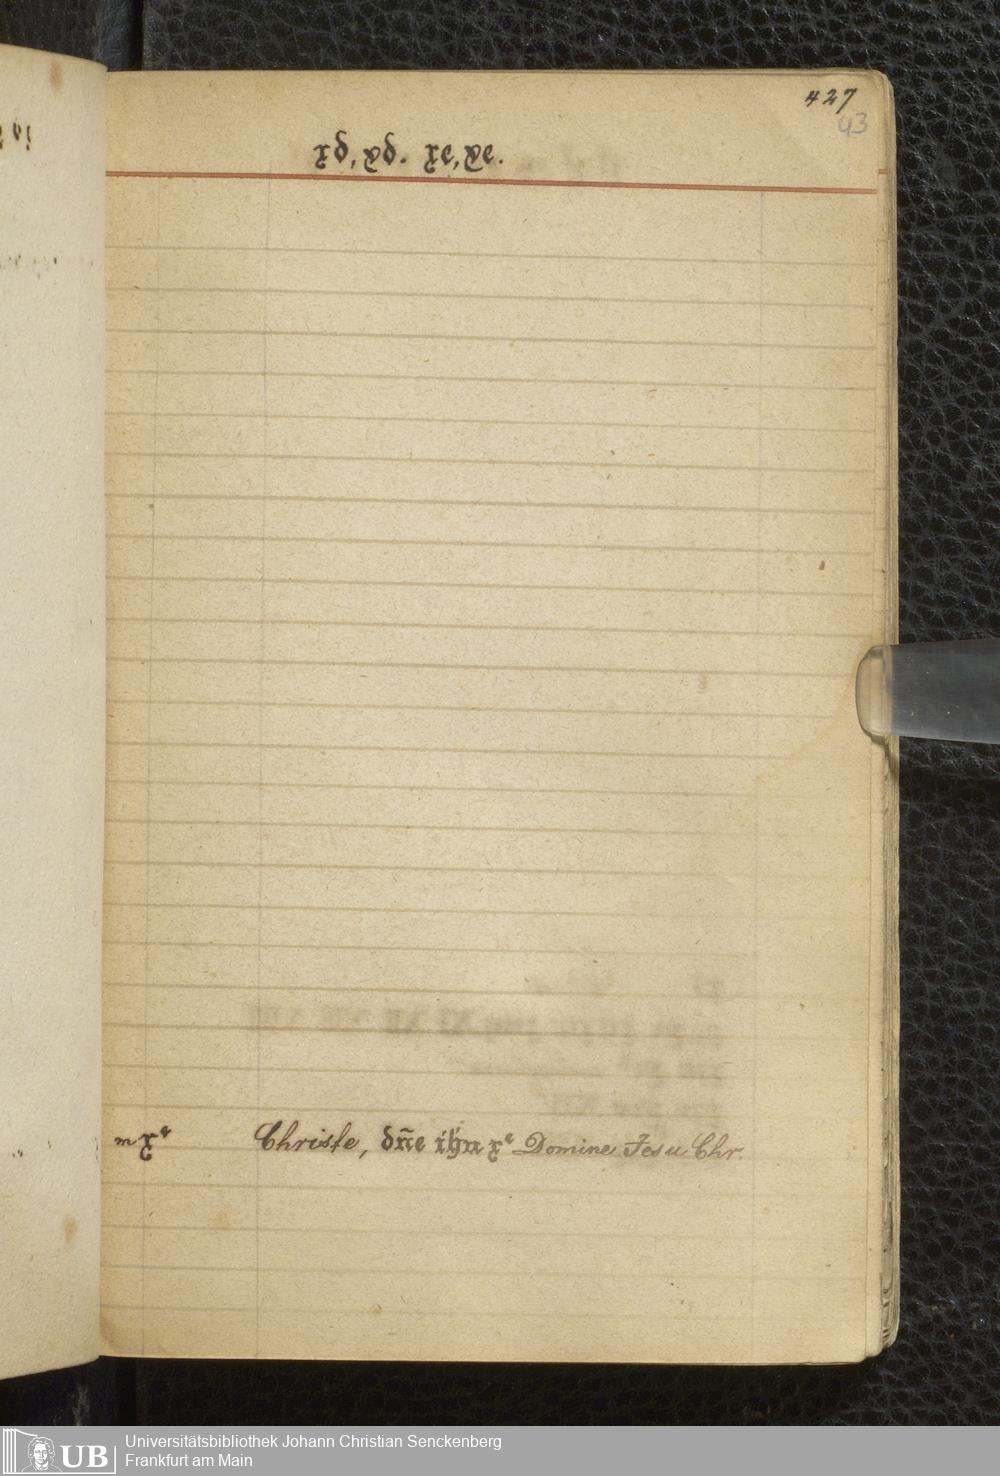 427
43
xd, xd. xe, xe.
m xͤ Christe, dn̄e ihu xͤ Domine Jesu Chr.
UB Universitätsbibliothek Johann Christian Senckenberg
Frankfurt am Main